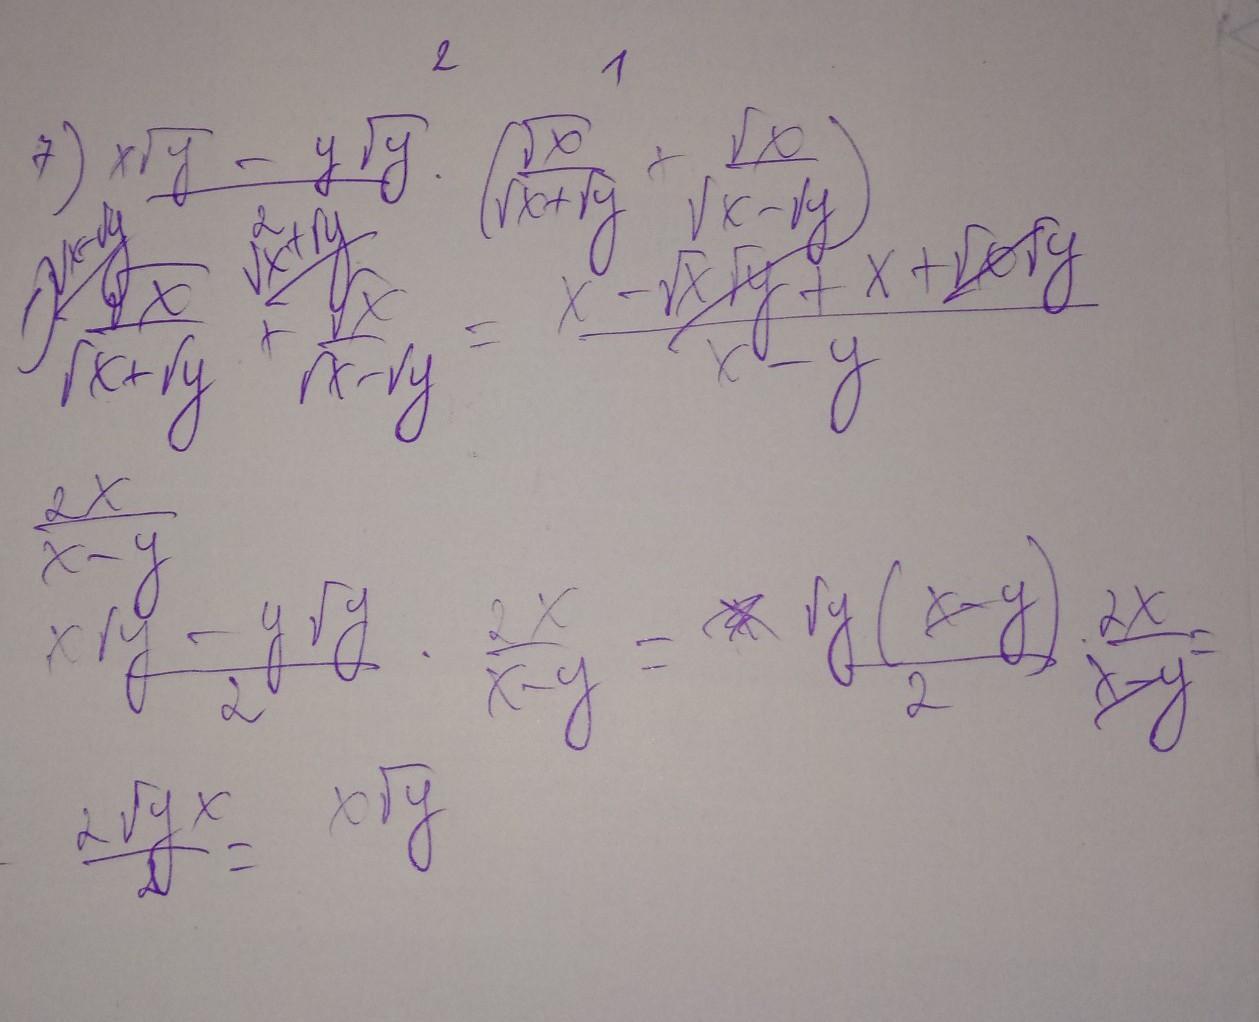 2 1
7) x√y - y√y / 2 · (√x / √x+√y + √x / √x-√y)
1) √x-√y √x / √x+√y + √x+√y √x / √x-√y = x - √x√y + x + √x√y / x - y
2x / x-y
x√y - y√y / 2 · 2x / x-y = √y(x-y) / 2 · 2x / x-y =
2√y x / 2 = x√y